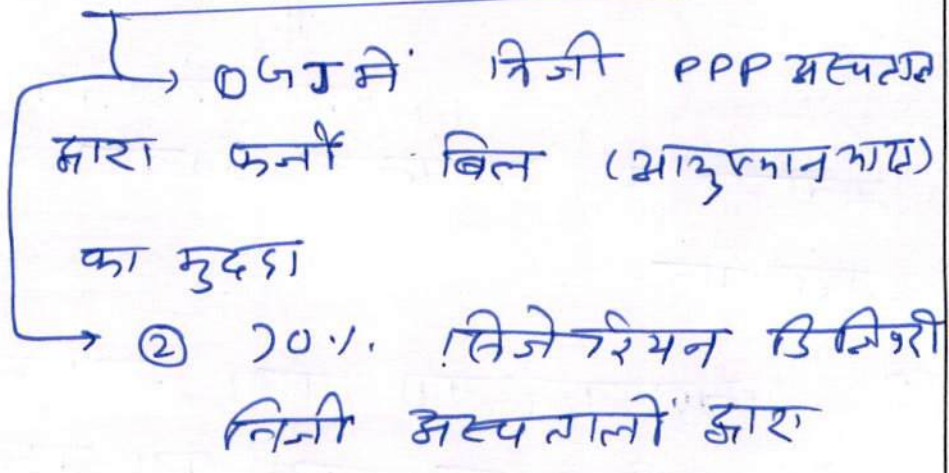 → ① GJ में निजी PPP अस्पताल
द्वारा फर्जी बिल (आयुष्मान भारत)
का मुद्दा
→ ② 70%. सिजेरियन डिलिवरी
निजी अस्पतालों द्वारा